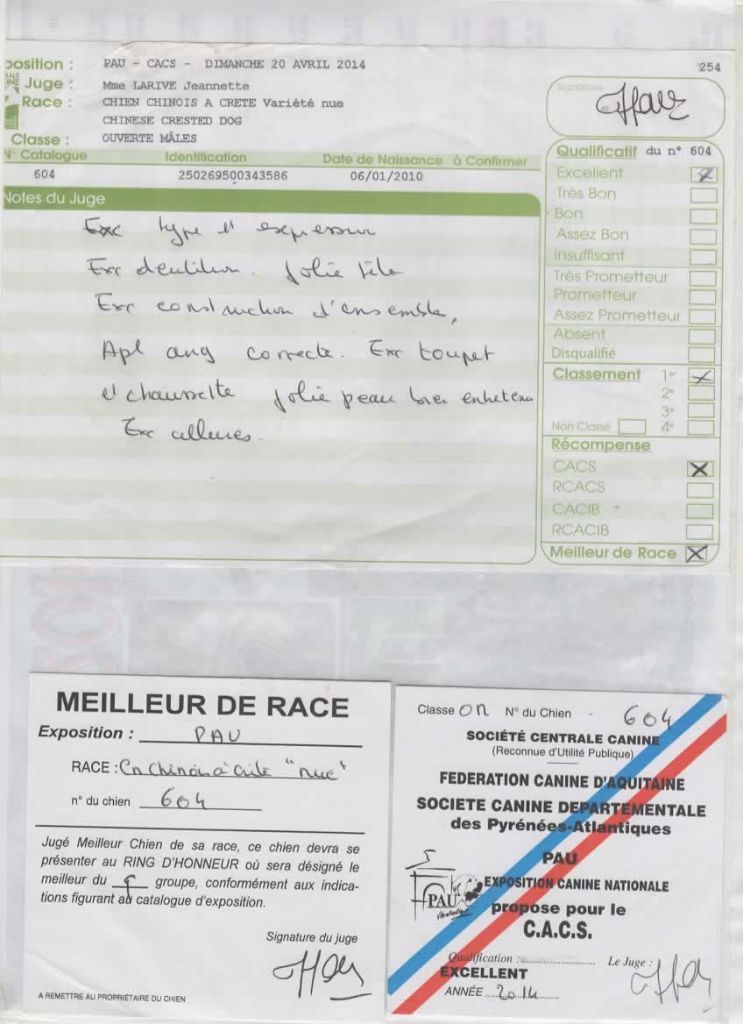 position :
PAU - CACS - DIMANCHE 20 AVRIL 2014
254
Juge :
Mme LARIVE Jeannette
Race :
CHIEN CHINOIS A CRETE Variété nue
CHINESE CRESTED DOG
Classe :
OUVERTE MÂLES
N° Catalogue Identification Date de Naissance à Confirmer
604 250269500343586 06/01/2010
Notes du Juge
Exc type et expression
Exc dentition. Jolie tête
Exc construction d'ensemble,
Apl ang correcte. Exc toupet
et chaussette jolie peau bien entretenu
Exc allures.
Signature
Qualificatif du n° 604
Excellent
Très Bon
Bon
Assez Bon
Insuffisant
Très Prometteur
Prometteur
Assez Prometteur
Absent
Disqualifié
Classement 1er
2e
3e
Non Classé 4e
Récompense
CACS
RCACS
CACIB
RCACIB
Meilleur de Race
MEILLEUR DE RACE
Exposition : PAU
RACE : Cn Chinois à Crête "nue"
n° du chien 604
Jugé Meilleur Chien de sa race, ce chien devra se
présenter au RING D'HONNEUR où sera désigné le
meilleur du groupe, conformément aux indica-
tions figurant au catalogue d'exposition.
Signature du juge
A REMETTRE AU PROPRIÉTAIRE DU CHIEN
Classe N° du Chien - 604
SOCIÉTÉ CENTRALE CANINE
(Reconnue d'Utilité Publique)
FEDERATION CANINE D'AQUITAINE
SOCIETE CANINE DEPARTEMENTALE
des Pyrénées-Atlantiques
PAU
PAU
EXPOSITION CANINE NATIONALE
propose pour le
C.A.C.S.
Qualification : Le Juge :
EXCELLENT
ANNÉE 2014